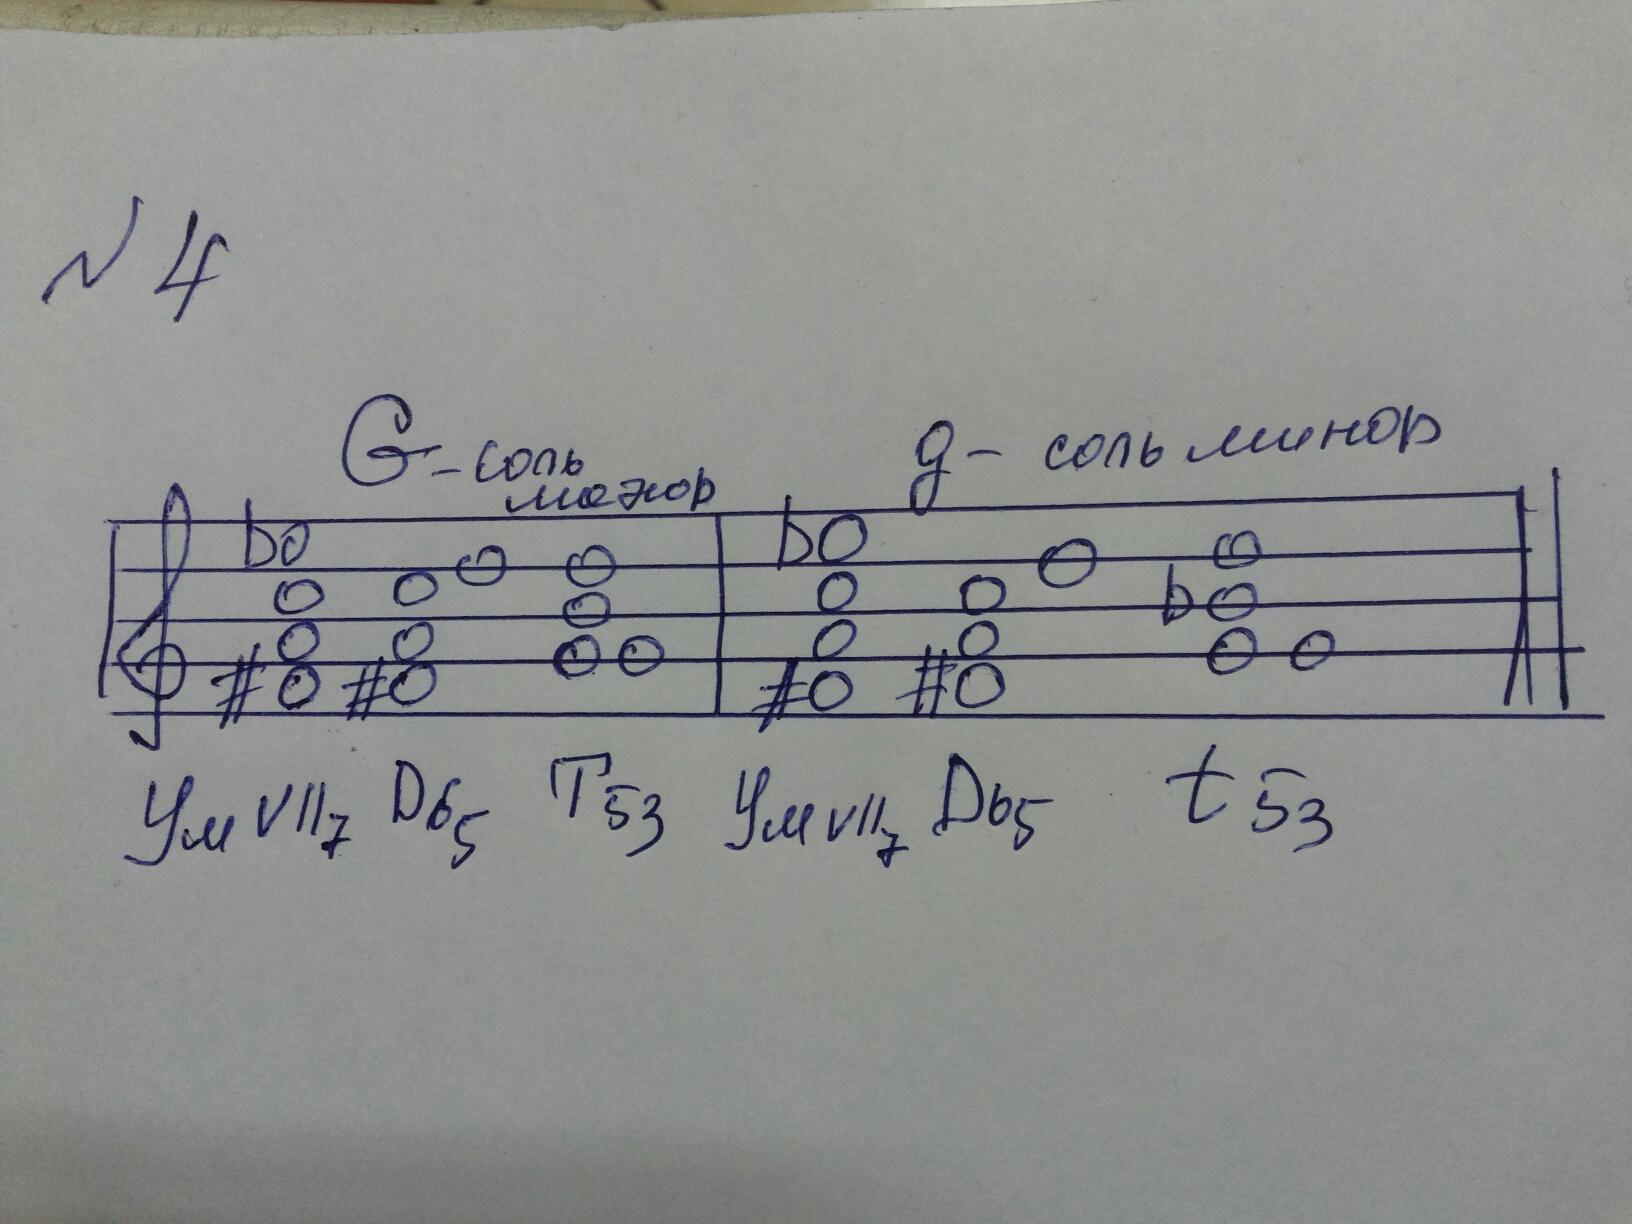 N 4
G - соль
мажор
g - соль минор
Ум VII7 D65 T53 Ум VII7 D65 t53